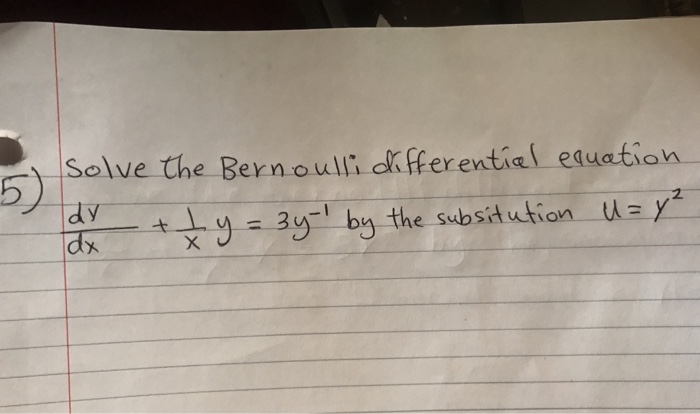 5) Solve the Bernoulli differential equation
dy/dx + 1/x y = 3y⁻¹ by the subsitution u = y²